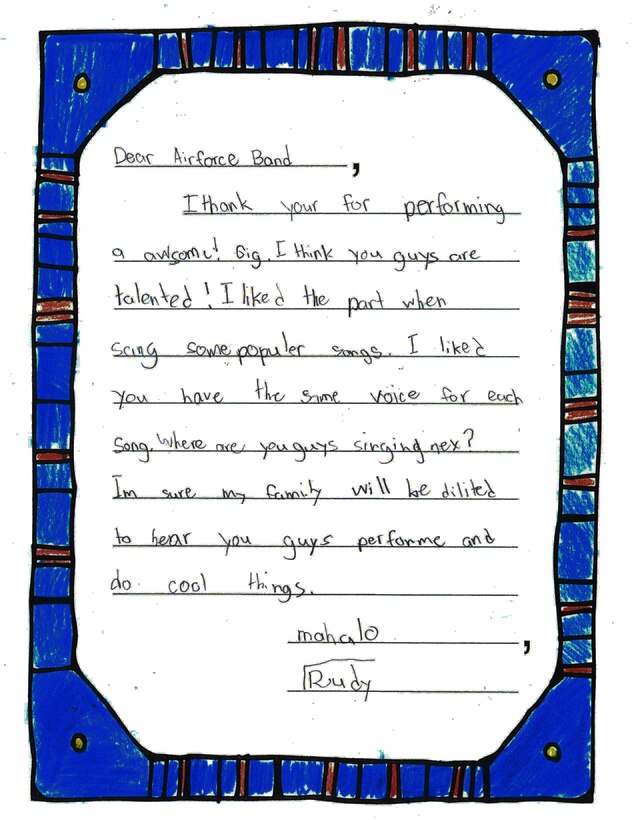 Dear Airforce Band ,
I thank your for performing
a awsome! Gig. I think you guys are
talented! I liked the part when
scing some populer songs. I liked
you have the same voice for each
song. Where are you guys singing nex?
Im sure my family will be dilited
to hear you guys performe and
do cool things.
mahalo ,
Rudy